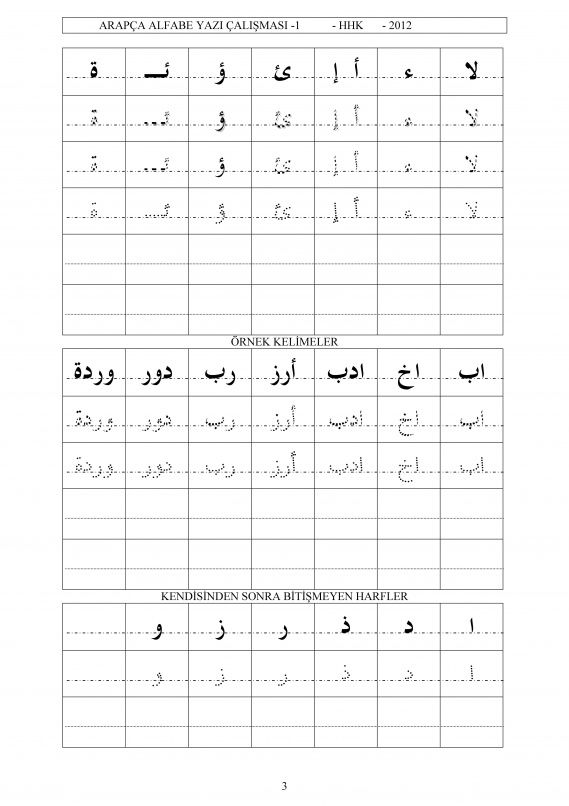 ARAPÇA ALFABE YAZI ÇALIŞMASI -1 - HHK - 2012
لا ء أ إ ئ ؤ ئـ ة
لا ء أ إ ئ ؤ ئـ ة
لا ء أ إ ئ ؤ ئـ ة
لا ء أ إ ئ ؤ ئـ ة
ÖRNEK KELİMELER
اب اخ ادب أرز رب دور وردة
اب اخ ادب أرز رب دور وردة
اب اخ ادب أرز رب دور وردة
KENDİSİNDEN SONRA BİTİŞMEYEN HARFLER
ا د ذ ر ز و
ا د ذ ر ز و
3